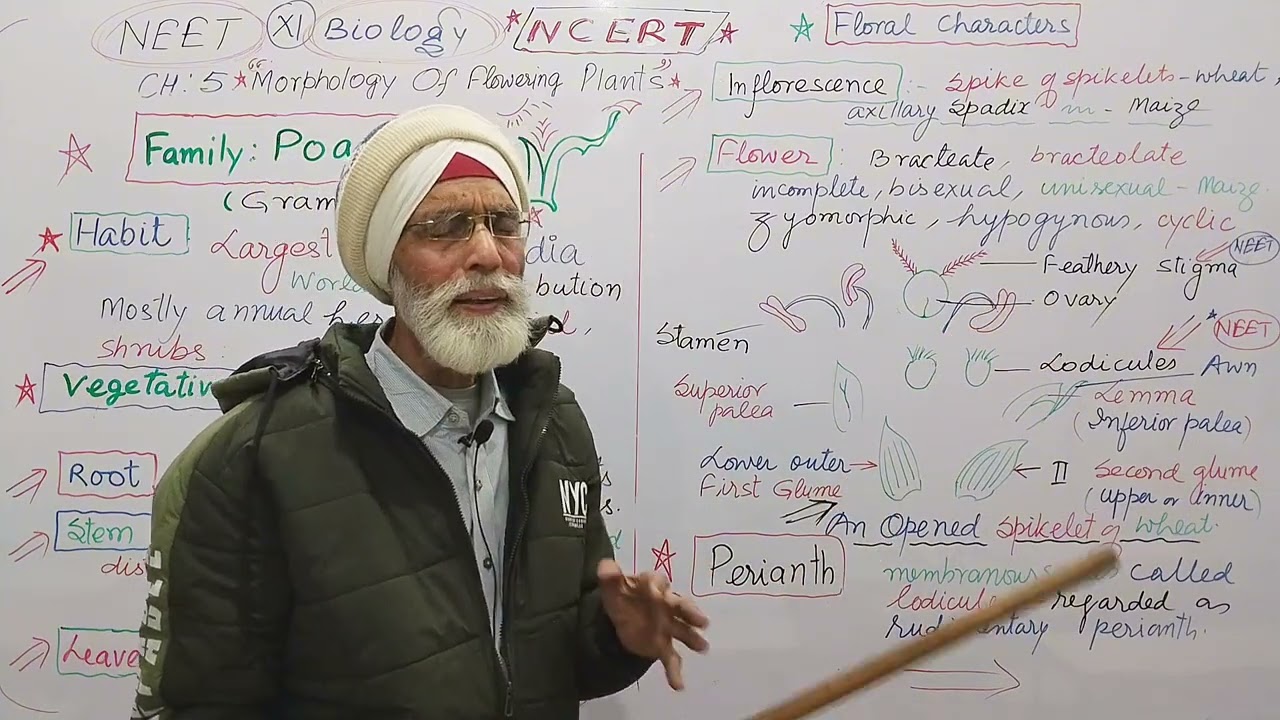 NEET XI Biology NCERT
CH: 5 "Morphology Of Flowering Plants"
Family: Poa
(Gram
Habit
Largest dia
Worl bution
Mostly annual her
shrubs.
Vegetativ
Root
Stem
dis
Leave
Floral Characters
Inflorescence :- Spike of spikelets - wheat,
axillary Spadix in - Maize
Flower : Bracteate, bracteolate
incomplete, bisexual, unisexual - Maize.
zyomorphic, hypogynous, cyclic
NEET
Feathery stigma
Ovary
Stamen
NEET
Lodicules Awn
Superior
palea
Lemma
(Inferior palea)
Lower outer
First Glume
II Second glume
(upper or inner)
An Opened Spikelet of wheat.
Perianth
membranous called
lodicule regarded as
rudimentary perianth.
NYC